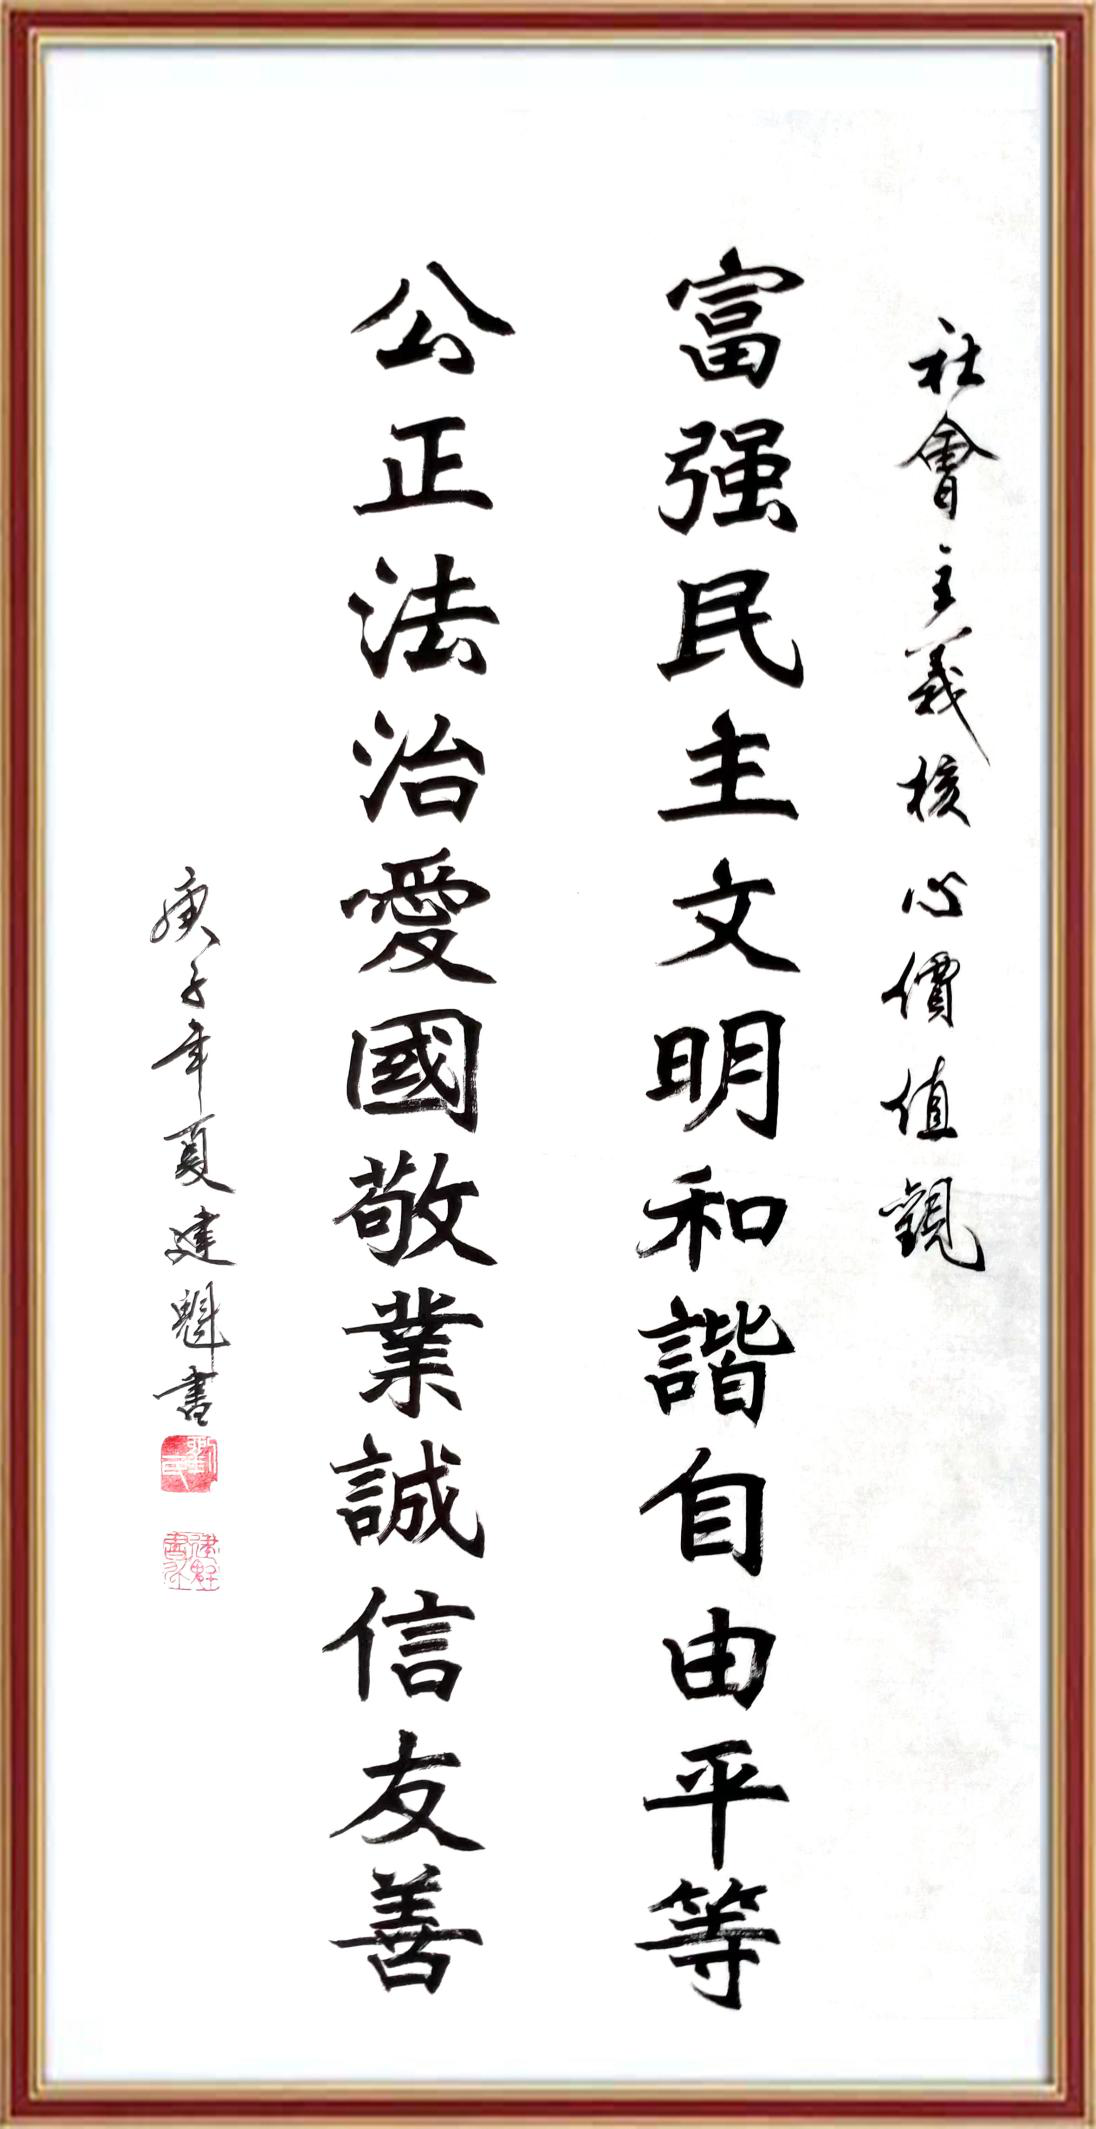 社會主義核心價值觀
富强民主文明和諧自由平等
公正法治愛國敬業誠信友善
庚子年夏建魁書
劉印